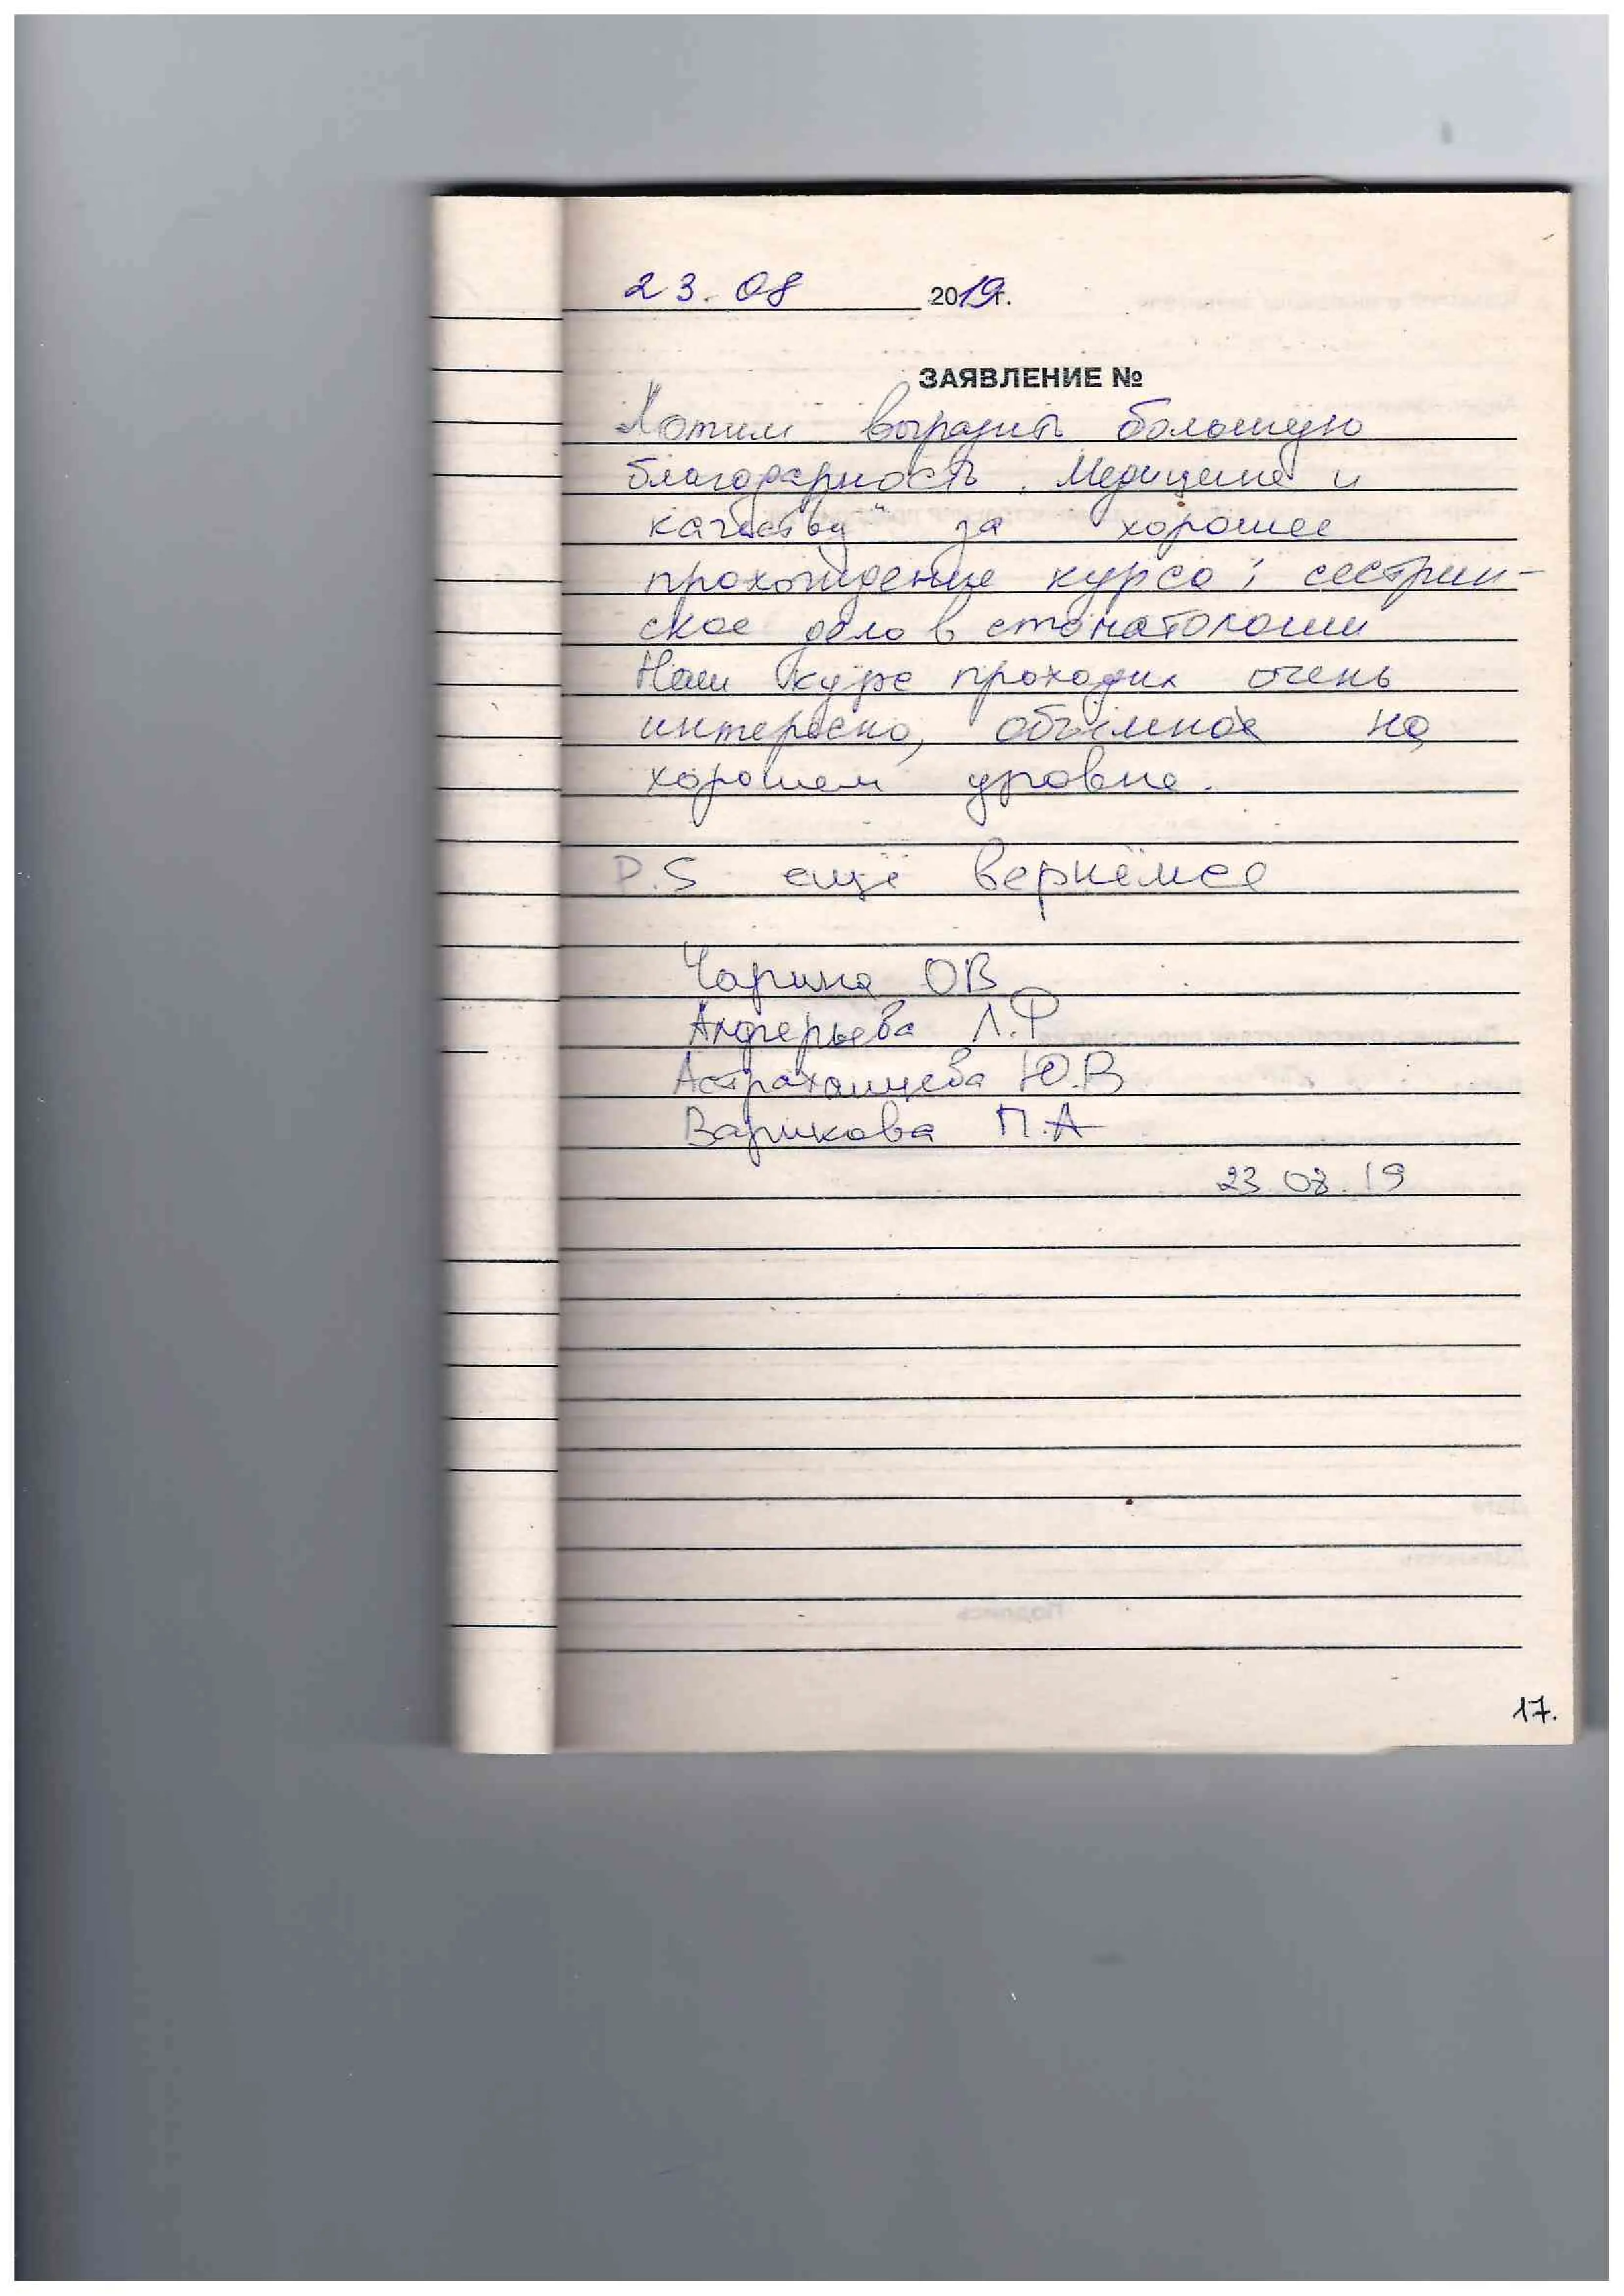 23.08 2019г.
ЗАЯВЛЕНИЕ №
Хотим выразить большую
благодарность "Медицине и
качеству" за хорошее
прохождение курса: сестрин-
ское дело в стоматологии
Наш курс проходил очень
интересно, объёмное на
хорошем уровне.
P.S ещё вернёмся
Чарина ОВ
Л.Ф
Астраханцева Ю.В
Варикова П.А
23.08.19
17.